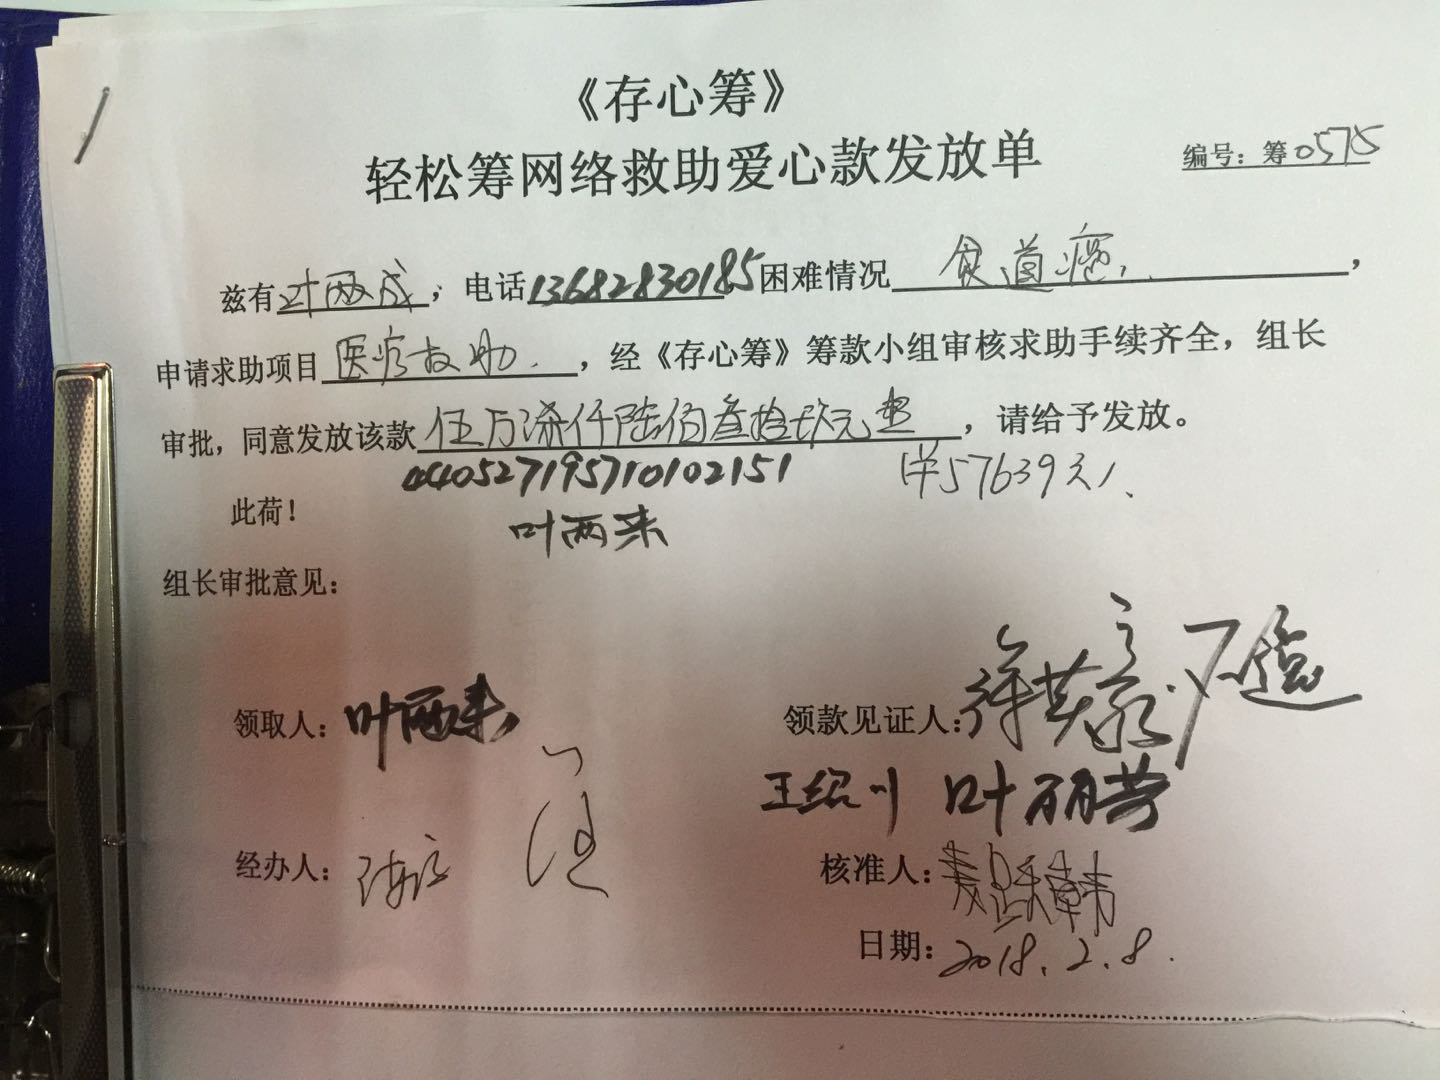 《存心筹》
轻松筹网络救助爱心款发放单
编号：筹0575
兹有叶两成，电话13682830185困难情况 食道癌，
申请求助项目医疗救助，经《存心筹》筹款小组审核求助手续齐全，组长
审批，同意发放该款伍万柒仟陆佰叁拾玖元整，请给予发放。
440527195710102151 ￥57639元
此荷！
叶两来
组长审批意见：
领取人：叶两来 领款见证人：
王绍川 叶丽芳
经办人： 核准人：
日期：2018.2.8.